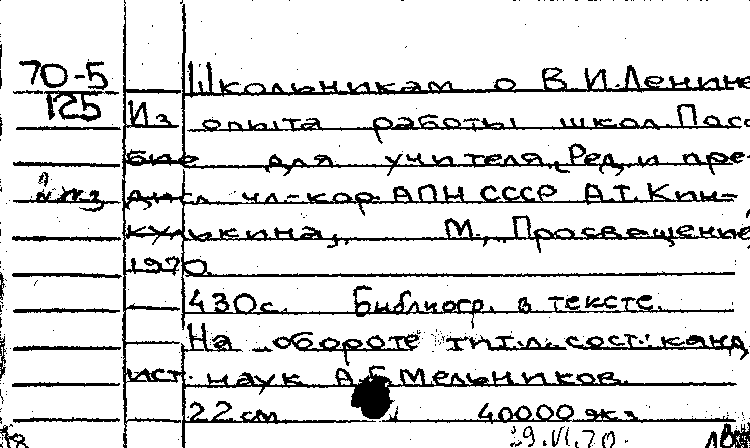 70-5 Школьникам о В.И.Ленине
125 Из опыта работы школ. Посо-
бие для учителя. Ред. и пре-
дисл. чл-кор. АПН СССР А.Т. Кин-
кулькина, М., Просвещение,
1970.
430с. Библиогр. в тексте.
На обороте тит.л. сост.: канд
ист. наук А.Г. Мельников.
22см 40000 экз
29.VI.70.